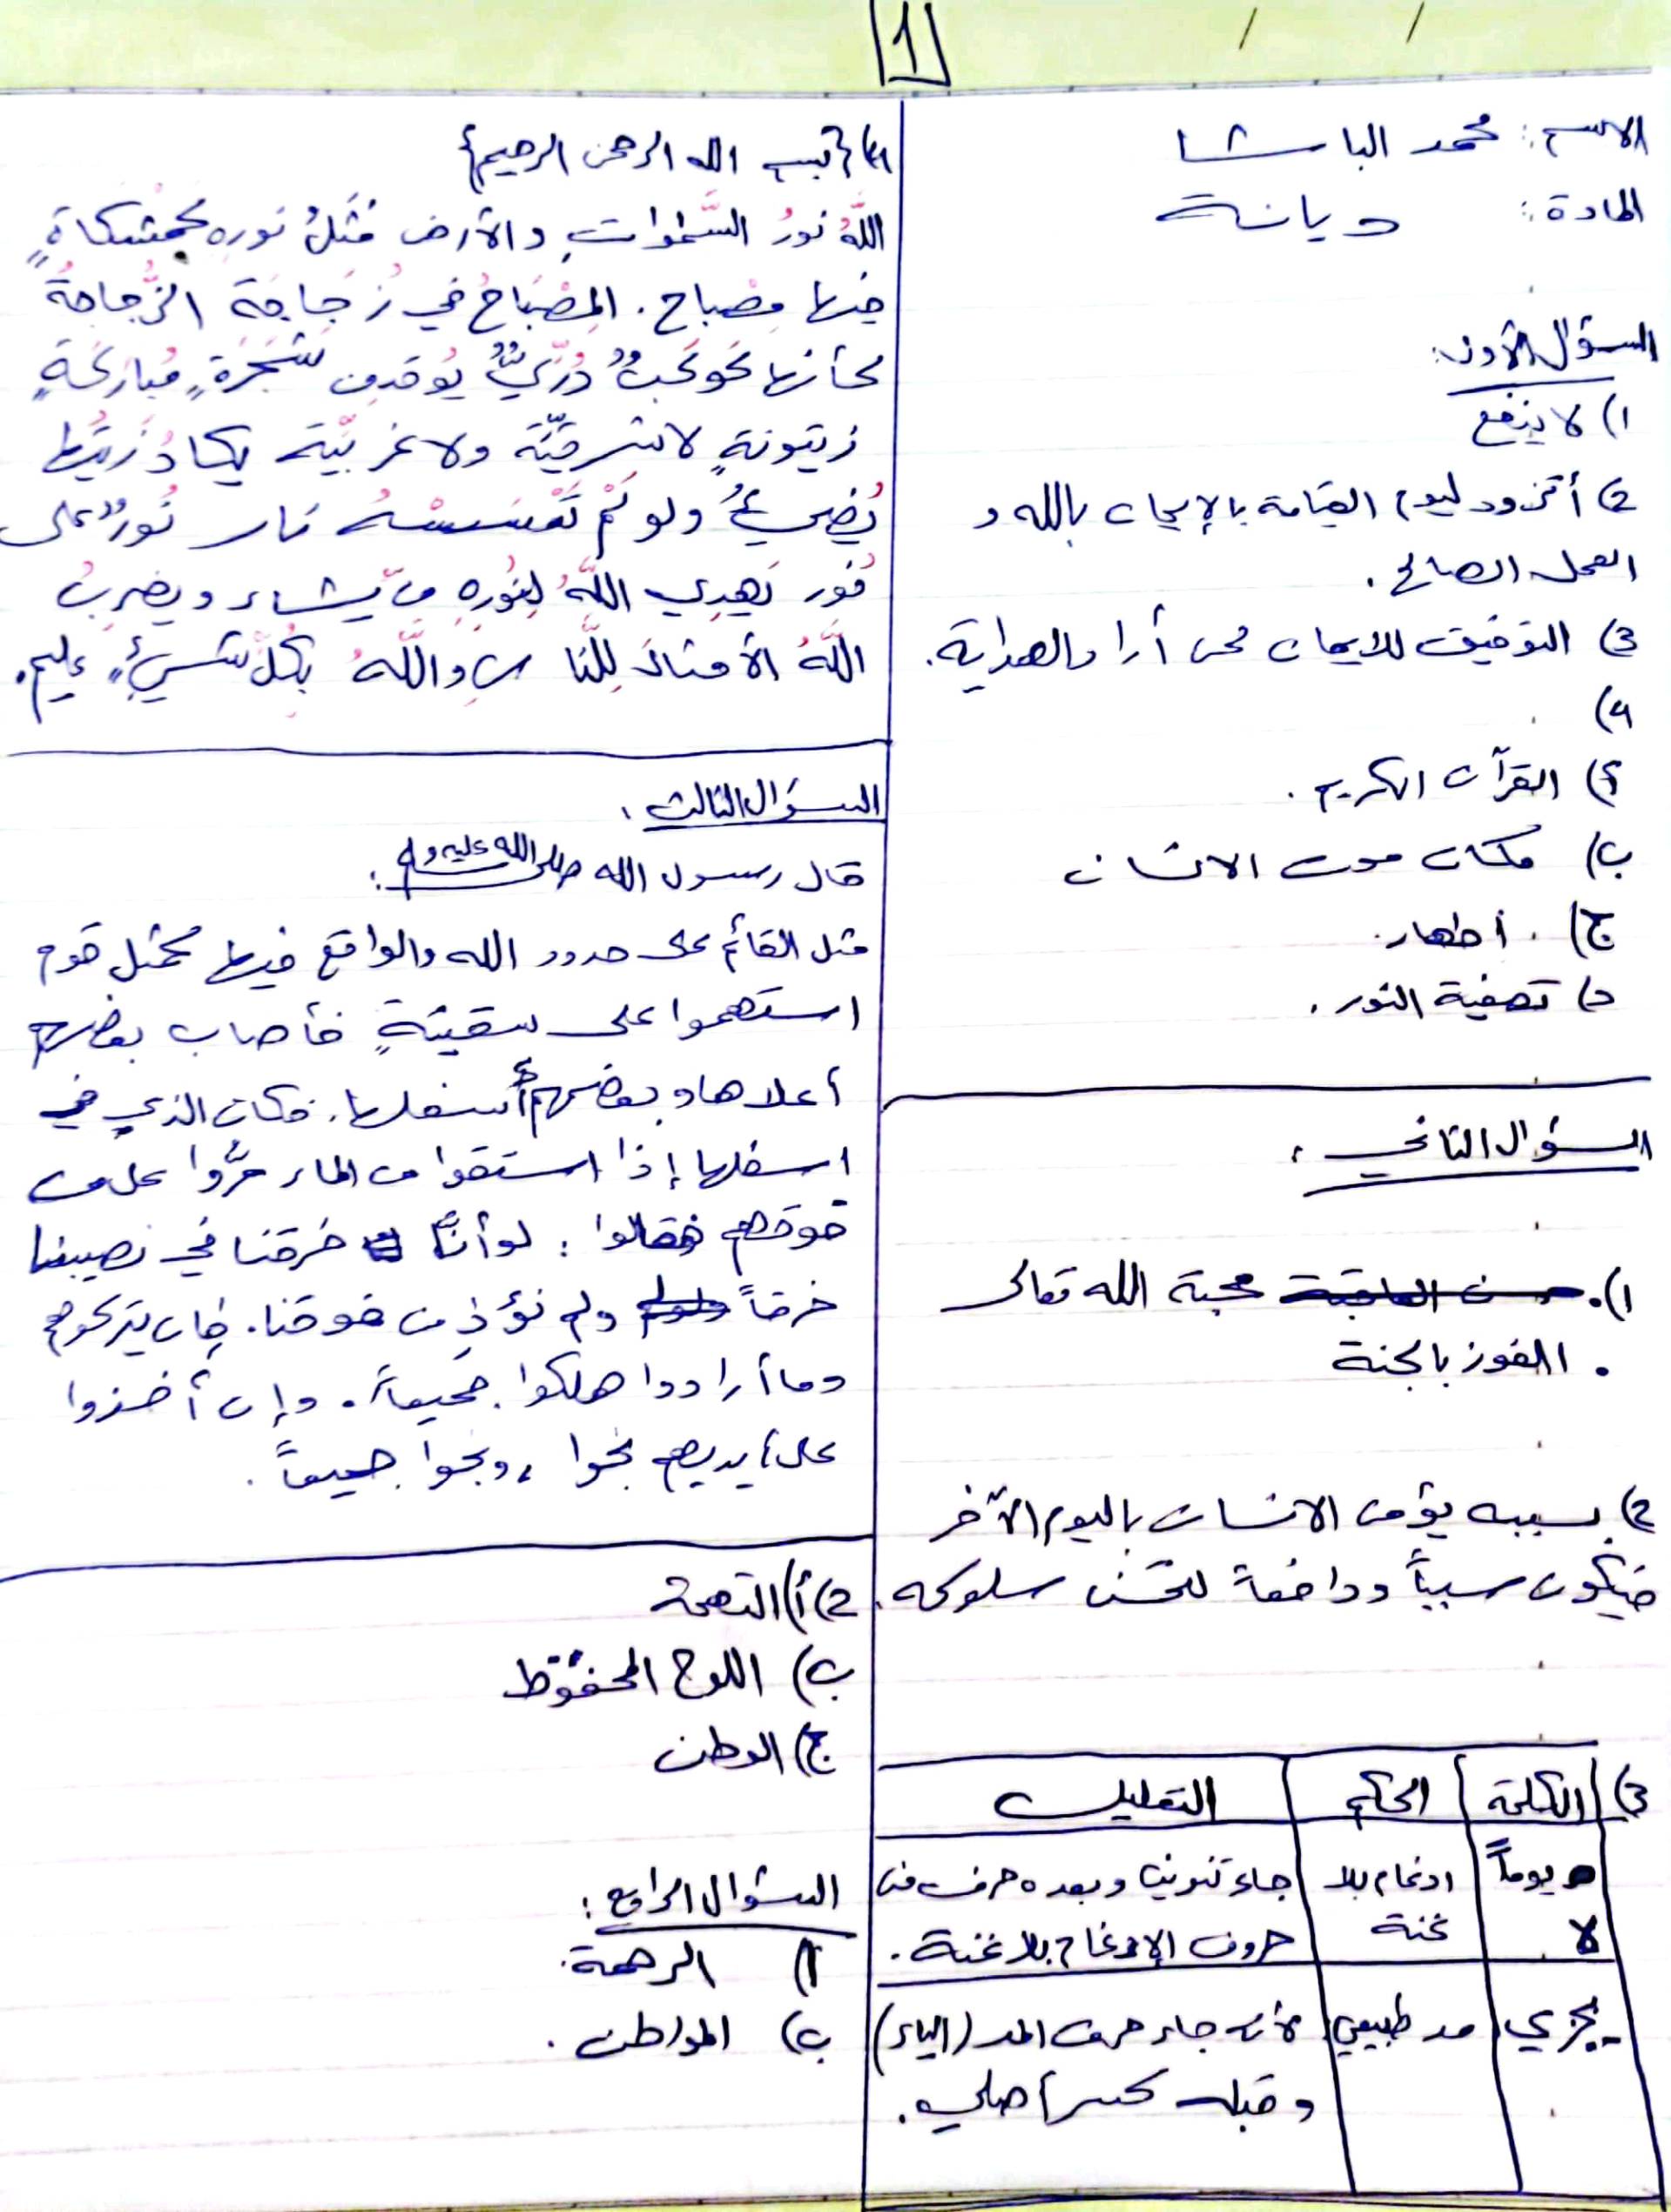 1
/ /
الاسم: محمد الباشا
المادة: ديانة
السؤال الأول:
1) لا ينفع
2) أتزود ليوم القيامة بالإيمان بالله و
العمل الصالح.
3) التوفيق للايمان لمن أراد الهداية.
4)
أ) القرآن الكريم.
ب) مكان موت الانسان
ج) أطهار.
د) تصفية النور.
السؤال الثاني:
1). محبة الله تعالى
. الفوز بالجنة
2) بسببه يؤمن الانسان باليوم الآخر
فيكون سبباً ودافعاً لتحسن سلوكه.
3) الكلمة الحكم التعليل
يوماً ادغام بلا جاء تنوين وبعده حرف من
لا غنة حروف الإدغام بلا غنة.
يجزي مد طبيعي لأنه جاء حرف المد (الياء)
وقبله كسر أصلي.
4) {بسم الله الرحمن الرحيم}
اللَّهُ نورُ السَّمٰواتِ والأرض مَثَلُ نوره كمشكاةٍ
فيها مصباح. المِصْبَاحُ في زُجَاجَة الزُّجاجةُ
كأنها كَوكَبٌ دُرِّيٌّ يُوقدمن شَجَرَةٍ مُبارَكَةٍ
زيتونةٍ لا شرقيَّة ولا غربيَّة يكادُ زَيتُها
يُضيءُ ولو لَمْ تَمْسَسْهُ نار نُورٌ على
نُور يَهدِي اللَّهُ لِنُورِهِ من يَشاء ويضربُ
اللَّهُ الأمثالَ لِلنَّاسِ واللَّهُ بِكلِّ شيءٍ عليم.
السؤال الثالث:
قال رسول الله صلى الله عليه وسلم:
مثل القائم على حدود الله والواقع فيها كمثل قوم
استهموا على سفينةٍ فأصاب بعضهم
أعلاها وبعضهم أسفلها. فكان الذي في
اسفلها إذا استقوا من الماء مرُّوا على من
فوقهم فقالوا: لو أنَّا خرقنا في نصيبنا
خرقاً ولم نؤذِ من فوقنا. فإن يتركوهم
وما أرادوا هلكوا جميعاً. وإن أخذوا
على أيديهم نجوا، ونجوا جميعاً.
2) أ) التهمة
ب) اللوح المحفوظ
ج) الوطن
السؤال الرابع:
أ) الرحمة.
ب) المواطن.